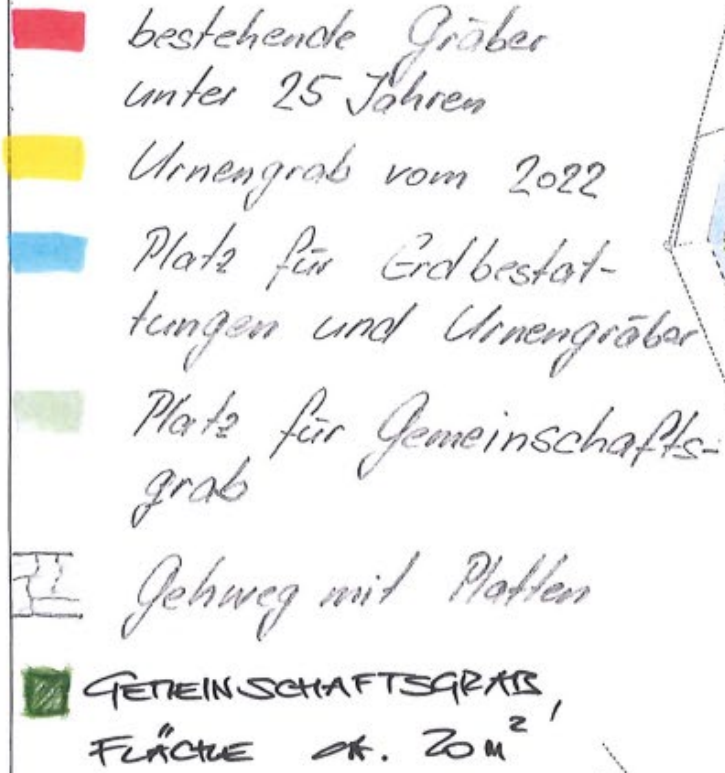 bestehende Gräber
unter 25 Jahren
Urnengrab vom 2022
Platz für Erdbestat-
tungen und Urnengräber
Platz für Gemeinschafts-
grab
Gehweg mit Platten
GEMEINSCHAFTSGRAB,
FLÄCHE ca. 20 m²